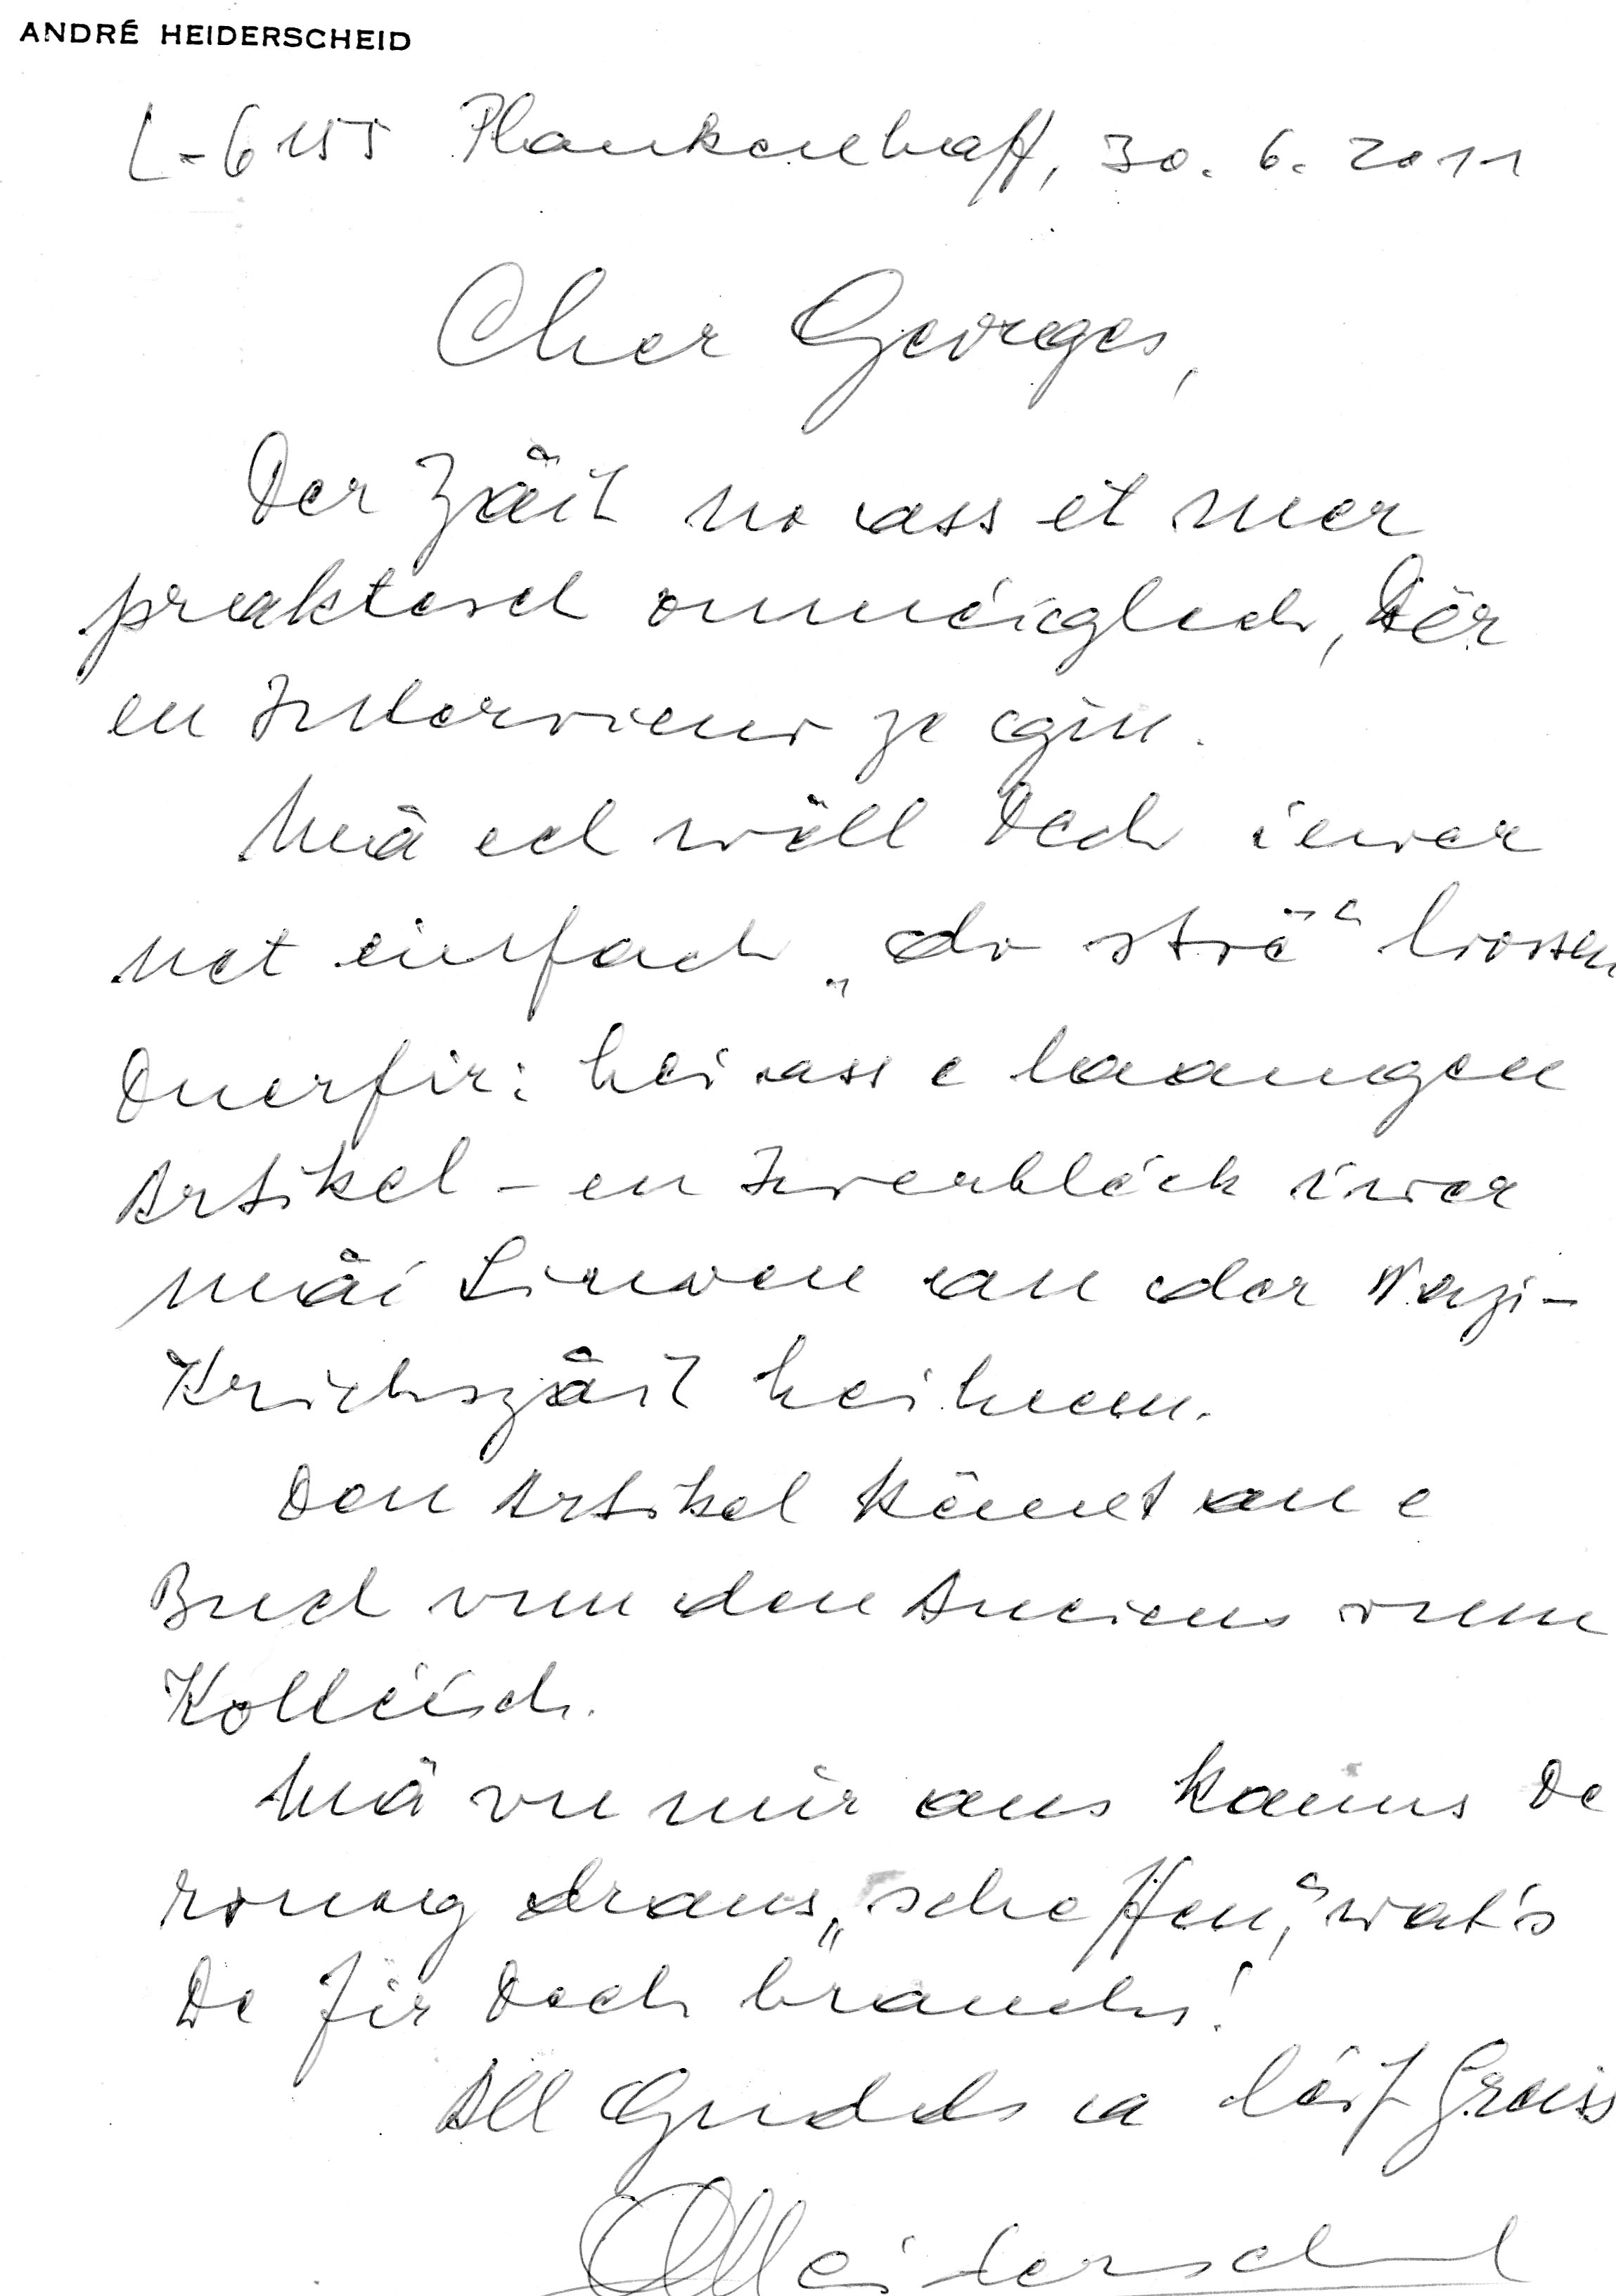 ANDRÉ HEIDERSCHEID
L-6155 Plankenhaff, 30. 6. 2011
Cher Georges,
Der Zäit no ass et mer
praktesch onméiglech, Dër
en Interview ze gin.
Mä ech wëll Dech iewer
net einfach „do stoë“ loossen
Duerfir: hei ass e laangen
Artikel – en Iwerbléck iwer
mäi Liewen an der Nazi-
Krichszäit heiheem.
Den Artikel kënnt an e
Buch vun den Anciens vum
Kolléisch.
Mä vu mir aus kanns De
roueg draus „scheffen“, wat's
De fir Dech brauchs!
All Guddes a léif Greiss
AHeiderscheid